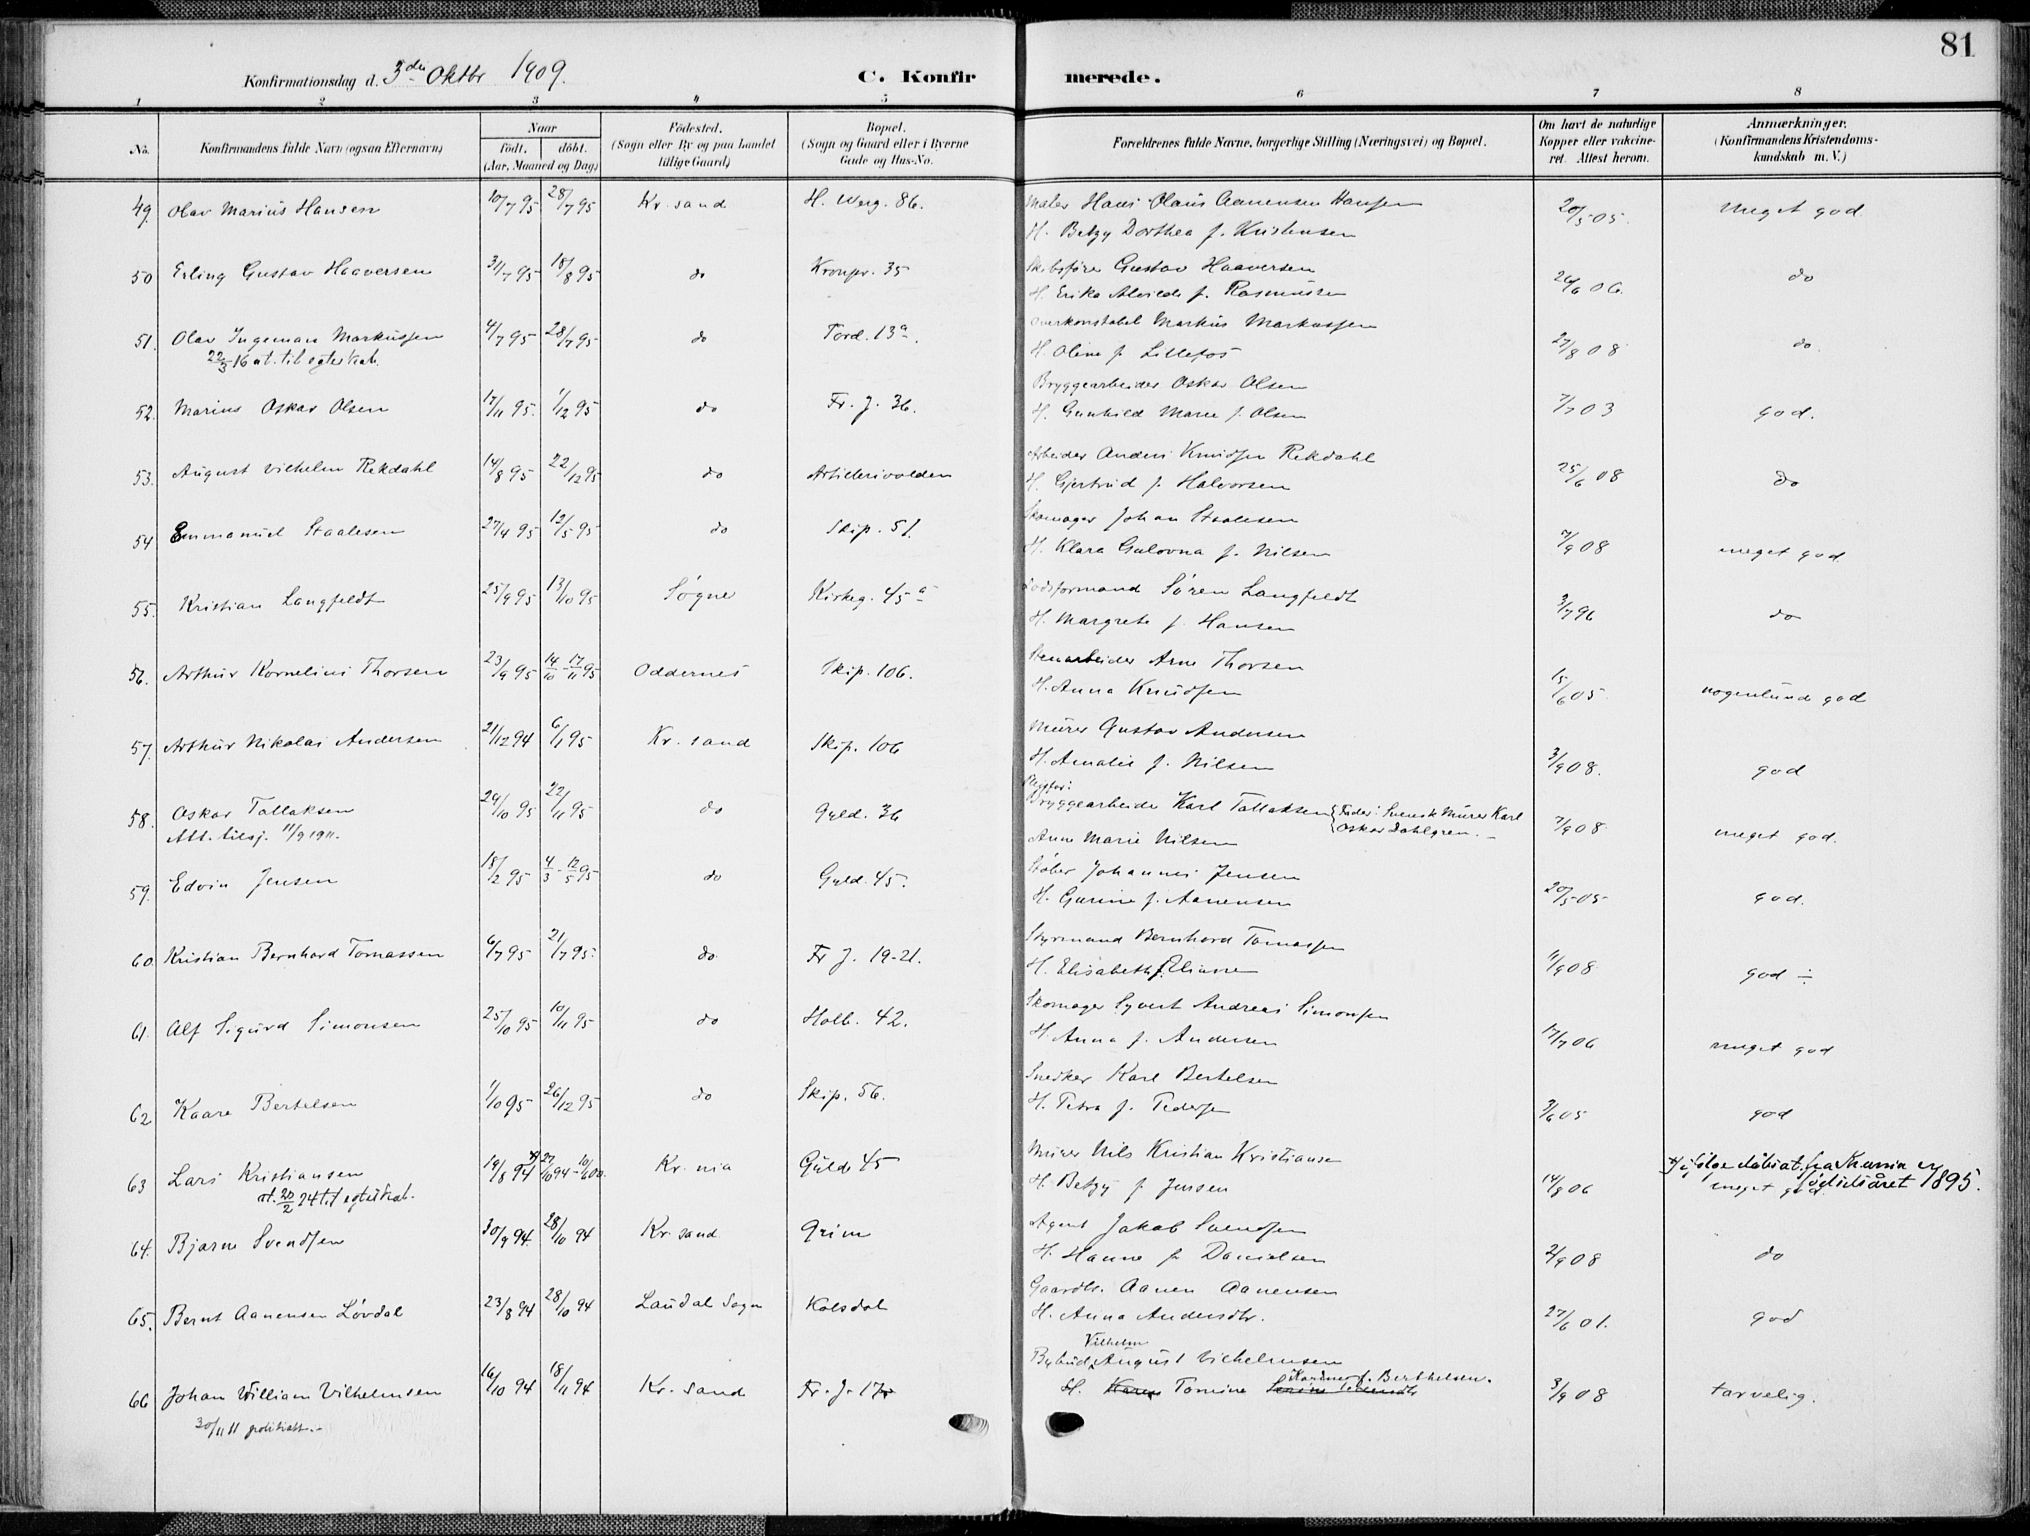 81
Konfirmationsdag d. 3die Oktbr 1909.
C. Konfirmerede.
1 2 3 4 5 6 7 8
No. Konfirmandens fulde Navn (ogsaa Efternavn) Naar født. døbt. (Aar, Maaned og Dag) Fødested. (Sogn eller By og paa Landet tillige Gaard) Bopæl. (Sogn og Gaard eller i Byerne Gade og Hus-No. Forældrenes fulde Navne, borgerlige Stilling (Næringsvei) og Bopæl. Om havt de naturlige Kopper eller vakcineret. Attest herom. Anmærkninger. (Konfirmandens Kristendomskundskab m. V.)
49. Olav Marius Hansen 10/7 95 28/7 95 Kr. sand H. Werg. 86. Maler Hans Olaus Aanensen Hansen 20/5 05. Meget god
H. Betzy Dorthea f. Kristensen
50 Erling Gustav Haaversen 31/7 95 18/8 95 do Kronpr. 35 Skibsfører Gustav Haaversen 26/6 06. do
H. Erika Alvilde f. Rasmussen
51. Olav Ingeman Markussen 4/7 95 28/7 95 do Tord. 13a. Overkonstabel Markus Markussen 27/8 08 do
22/3 16 at. til egteskab. H. Oline f. Lillefos
52. Marius Oskar Olsen 17/11 95. 1/12 95 do Fr. J. 36. Bryggearbeider Oskar Olsen 7/7 03 god.
H. Gunhild Marie f. Olsen
53. August Vilhelm Rekdahl 14/8 95 22/12 95 do Artillerivolden Arbeider Anders Knudsen Rekdahl 25/6 08 do
H. Gjertrud f. Halvorsen
54 Emmanuel Staalesen 27/4 95 12/5 95 do Skip. 51. Skomager Johan Staalesen 7/9 08 meget god
H. Klara Gulovna f. Nilsen
55. Kristian Langfeldt 25/9 95 13/10 95 Søgne Kirkeg. 45a Lodsformand Søren Langfeldt 3/7 96 do
H. Margrete f. Hansen
56. Arthur Kornelius Thorsen 23/9 95 14/10 - 17/11 95 Oddernes Skip. 106. Stenarbeider Arne Thorsen 15/6 05. nogenlunde god
H. Anna Knudsen
57. Arthur Nikolai Andersen 21/12 94 6/1 95 Kr. sand Skip. 106 Murer Gustav Andersen 3/9 08. god
H. Amalie f. Nilsen
58. Oskar Tallaksen 29/10 95 22/11 95 do Gyld. 36 Plejefor: Bryggearbeider Karl Tallaksen {Fader: Svensk Murer Karl Oskar Dahlgren. 7/9 08 meget god.
Att. tilsj. 11/9 1911. Anne Marie Nilsen
59. Edvin Jensen 18/2 95 4/3 - 12/5 95 do Gyld. 45. Støber Johannes Jensen 20/5 05 god.
H. Gurine f. Aanensen
60. Kristian Bernhard Tomassen 6/7 95 21/7 95. do Fr J. 19-21. Styrmand Bernhard Tomassen 11/9 08 god ÷
H. Elisabeth f. Eliasse
61. Alf Sigurd Simonsen 25/10 95 10/11 95 do Holb. 42. Skomager Syvert Andreas Simonsen 17/7 06 meget god
H. Anna f. Andersen
62 Kaare Bertelsen 1/10 95 26/12 95 do Skip. 56. Snedker Karl Bertelsen 3/6 05 god
H. Petra f. Pedersen
63 Lars Kristiansen 19/8 94 x) 27/10 94 - 10/6 00. Kr. nia Gyld. 45 Murer Nils Kristian Kristiansen 14/9 06 x) ifølge dåbsat. fra Kr.ania er fødselsåret 1895.
at. 20/2 24 til egteskab. H. Betzy f. Jensen meget god.
64. Bjarne Svendsen 30/9 94. 28/10 94 Kr. sand Grim Agent Jakob Svendsen 2/9 08 do
H. Hanne f. Danielsen
65. Bernt Aanensen Løvdal 23/8 94 28/10 94 Laudal Sogn Kolsdal Gaardbr. Aanen Aanensen 27/6 01. god
H. Anna Andersdtr.
66 Johan William Vilhelmsen 16/10 94 18/11 94 Kr. sand Fr. J. 17 Bybud Vilhelm August Vilhelmsen 3/9 08 tarvelig.
30/11 11 H. Karen Tomine f. Berthelsen.